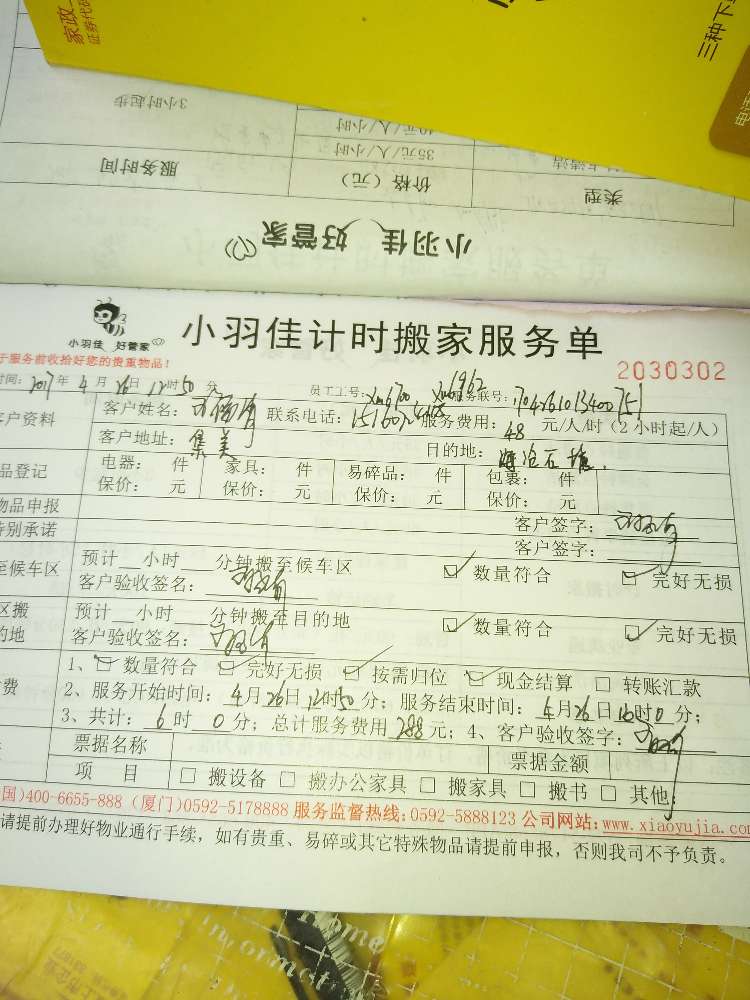 家政
证券代码
三种下
3小时起步
40元/人/小时
35元/人/小时
服务时间
价格（元）
类型
小羽佳 好管家
小羽佳 好管家
小羽佳计时搬家服务单
于服务前收拾好您的贵重物品！
2030302
时间：2017年4月26日12时50分 员工工号： 服务联号：
客户资料
客户姓名： 联系电话： 服务费用：48元/人/时（2小时起/人）
客户地址：集美 目的地：海沧石塘
品登记
电器： 件 家具： 件 易碎品： 件 包裹： 件
保价： 元 保价： 元 保价： 元 保价： 元
物品申报 客户签字：
特别承诺 客户签字：
至候车区
预计__小时__分钟搬至候车区 ☑ 数量符合 ☑ 完好无损
客户验收签名：
区搬
的地
预计__小时__分钟搬至目的地 ☑ 数量符合 ☑ 完好无损
客户验收签名：
费
1、☑ 数量符合 ☑ 完好无损 ☑ 按需归位 ☑ 现金结算 □ 转账汇款
2、服务开始时间：4月26日12时50分；服务结束时间：4月26日16时0分；
3、共计：6时0分；总计服务费用288元；4、客户验收签字：
票据名称 票据金额
项 目 □ 搬设备 □ 搬办公家具 □ 搬家具 □ 搬书 □ 其他：
国)400-6655-888 (厦门)0592-5178888 服务监督热线:0592-5888123 公司网站:www.xiaoyujia.com
请提前办理好物业通行手续，如有贵重、易碎或其它特殊物品请提前申报，否则我司不予负责。